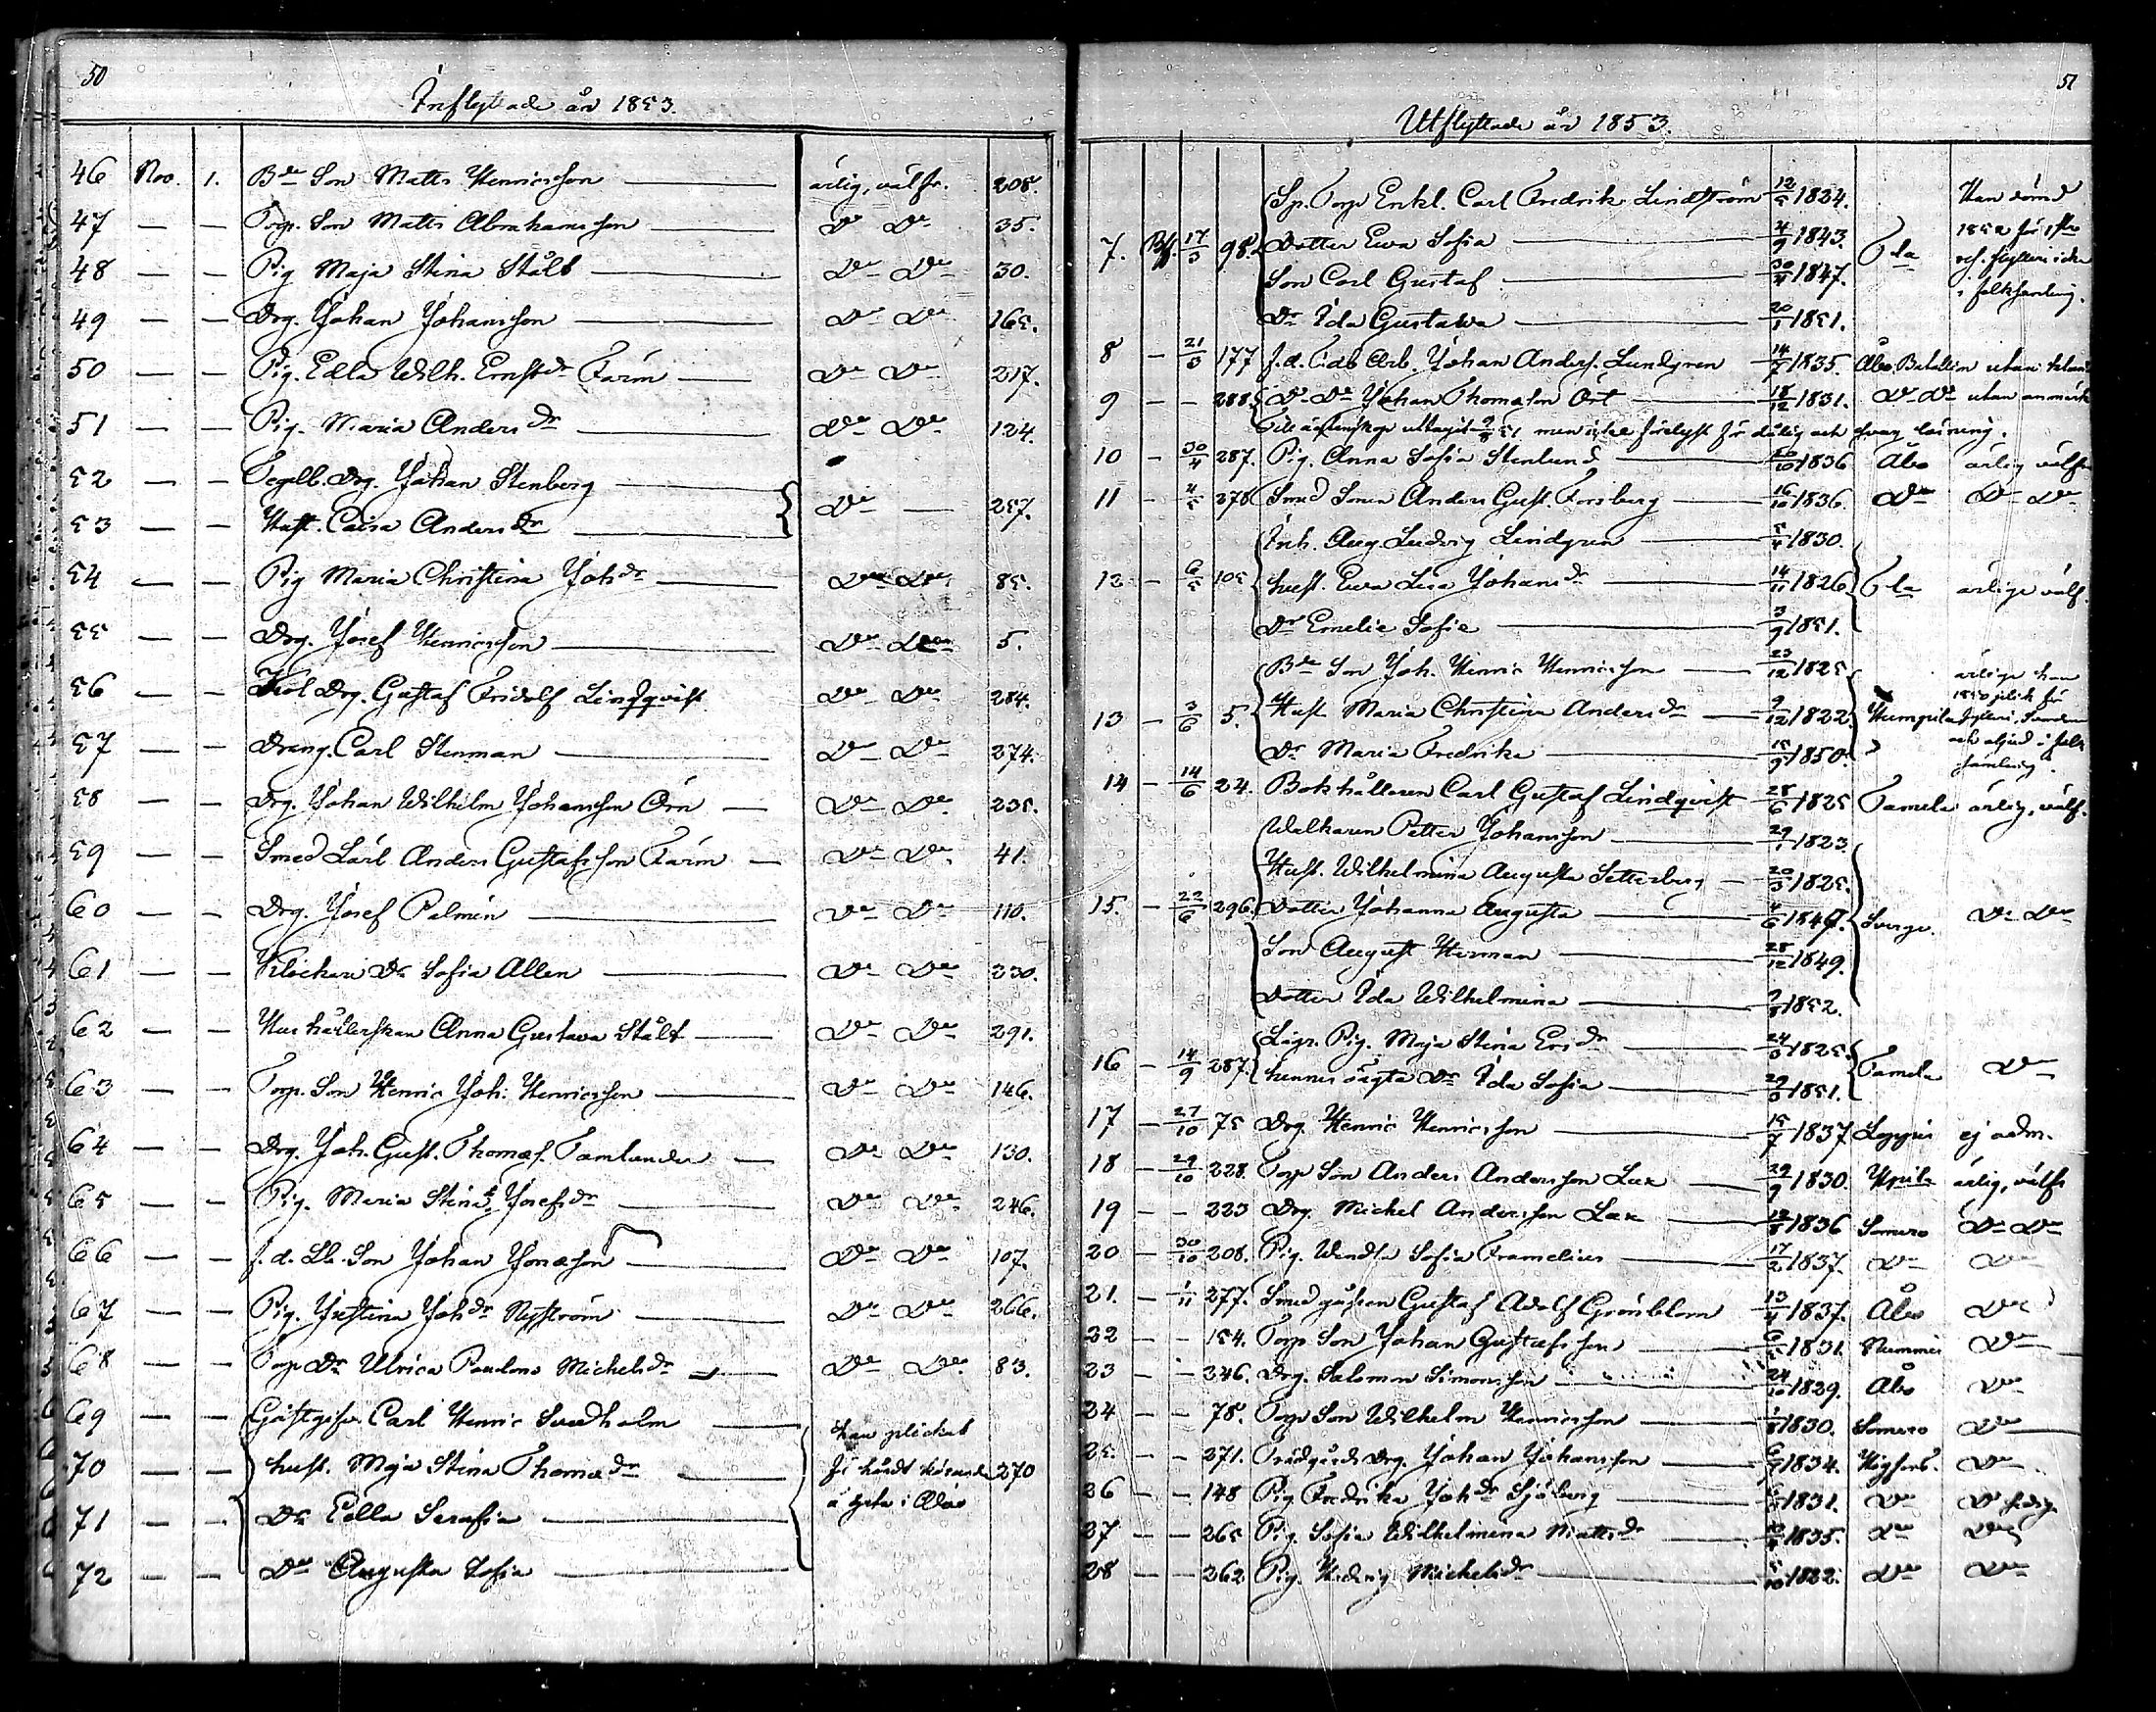 50
Inflyttade år 1853.
46 Nov. 1. Bde Son Matts Henricsson ärlig, välfr. 208.
47 — — Torp. Son Matts Abrahamsson Do Do 35.
48 — — Pig Maja Stina Stålt Do Do 30.
49 — — Drg. Johan Johansson Do Do 165.
50 — — Pig. Edla Wilh. Ernstdr Farm Do Do 217.
51 — — Pig. Maria Andersdr Do Do 124.
52 — — Tegelb. Drg. Johan Stenberg
53 — — Hust. Caisa Andersdr Do — 257.
54 — — Pig Maria Christina Johdr Do Do 85.
55 — — Drg. Josef Henricsson Do Do 5.
56 — — Drg. Gustaf Fridolf Lindqvist Do Do 284.
57 — — Dreng. Carl Stenman Do Do 274.
58 — — Drg. Johan Wilhelm Johansson Örn Do Do 235.
59 — — Smed Lärl. Anders Gustafsson Farm Do Do 41.
60 — — Drg. Josef Palmén Do Do 110.
61 — — Klockare Dr Sofia Allen Do Do 230.
62 — — Hushållerskan Anna Gustava Stålt Do Do 291.
63 — — Torp. Son Henric Joh. Henricsson Do Do 146.
64 — — Drg. Joh. Gust. Thomas. Tamlander Do Do 130.
65 — — Pig. Maria Stina Josefsdr Do Do 246.
66 — — f. d. Son Johan Jonasson Do Do 107.
67 — — Pig. Justina Johdr Nyström Do Do 266.
68 — — Torp Dr Ulrica Paulona Michelsdr Do Do 83.
69 — — Gästgifv. Carl Henric Sundholm
70 — — hust. Maja Stina Thomasdr 270
han plicktat
för hårdt körande
å gata i Åbo
71 — — Dr Edla Serafia
72 — — Do Augusta Sofia
51
Utflyttade år 1853.
Sp. Torp Enkl. Carl Fredrik Lindström 12/5 1824.
7. 17/3 98. Dotter Ewa Sofia 4/9 1843.
Son Carl Gustaf 30/4 1847.
Dr Ida Gustava 20/1 1851.
Han dömd
8 — 21/3 177 f. d. Arb. Johan Anders. Lundgren 14/7 1835. Åbo Bataillon utan
9 — — 288. Do Do Johan Thomasson Ört 18/12 1831. Do Do utan anmärk
Till äktenskap uttagit men icke förelyst för dålig och svag läsning.
10 — 30/4 287. Pig. Anna Sofia Stenlund 1836 Åbo ärlig välfr
11 — 4/5 278 Smed Sonen Anders Gust. Forsberg 16/10 1836. Do Do Do
Inh. Aug. Ludvig Lindgren 5/4 1830.
12 — 6/5 105 hust. Ewa Lisa Johansdr 14/11 1826 ärlige välf.
Dr Emelie Sofia 3/9 1851.
Bde Son Joh. Henric Henricsson 23/12 1825
13 — 3/6 5. Hust Maria Christina Andersdr 9/12 1822. Humpila
Dr Maria Fredrika 15/9 1850.
ärlige han
14 — 14/6 24. Bokhållaren Carl Gustaf Lindqvist 28/6 1825 Tamela ärlig, välf.
Walkaren Petter Johansson 29/1 1823.
Hust. Wilhelmina Augusta Setterberg 20/3 1825.
15. — 22/6 296. Dotter Johanna Augusta 4/6 1847. Sverge. Do Do
Son August Herman 28/12 1849.
Dotter Ida Wilhelmina 1852.
Lägr. Pig. Maja Stina Ersdr 24/3 1825.
16 — 14/9 287. hennes oägta Dr Ida Sofia 1851. Tamela Do
17 — 27/10 75 Drg. Henric Henricsson 15/7 1837 Loppis ej adm.
18 — 29/10 228. Torp Son Anders Andersson Lax 29/9 1830. Hpila ärlig, välfr
19 — — 223 Drg. Michel Andersson Lax 1836 Somero Do Do
20 — 30/10 208. Pig. Wendla Sofia Framelius 17/2 1837. Do Do
21. — 1/11 277. Smed gesällen Gustaf Adolf Grönblom 13/4 1837. Åbo Do
22 — — 154. Torp Son Johan Gustafsson 1831. Nummis Do
23 — — 246. Drg. Salomon Simonsson 24/10 1829. Åbo Do
24 — — 78. Torp Son Wilhelm Henricsson 1830. Somero Do
25. — — 271. Trädgårds Drg. Johan Johansson 1834. Hgfors. Do
26 — — 148 Pig Fredrika Johdr Sjöberg 1831. Do Do
27 — — 265 Pig. Sofia Wilhelmina Mattsdr 1835. Do Do
28 — — 262 Pig. Hedvig Michelsdr 5/10 1822. Do Do